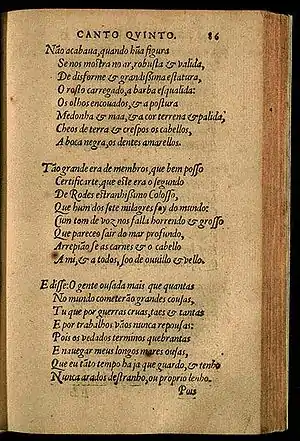 CANTO QVINTO. 86
Não acabaua, quando hũa figura
Se nos mostra no ar, robusta & valida,
De disforme & grandissima estatura,
O rosto carregado, a barba esqualida:
Os olhos encouados, & a postura
Medonha & maa, & a cor terrena & palida,
Cheos de terra & crespos os cabellos,
A boca negra, os dentes amarellos.
Tão grande era de membros, que bem posso
Certificarte, que este era o segundo
De Rodes estranhissimo Colosso,
Que hum dos sete milagres foy do mundo:
Cum tom de voz nos falla horrendo & grosso
Que pareceo sair do mar profundo,
Arrepião se as carnes & o cabello
A mi, & a todos, soo de ouuillo & vello.
E disse: O gente ousada mais que quantas
No mundo cometerão grandes cousas,
Tu que por guerras cruas, taes & tantas
E por trabalhos vãos nunca repousas:
Pois os vedados terminos quebrantas
E nauegar meus longos mares ousas,
Que eu tãto tempo ha ja que guardo, & tenho
Nunca arados destranho, ou proprio lenho.
Pois